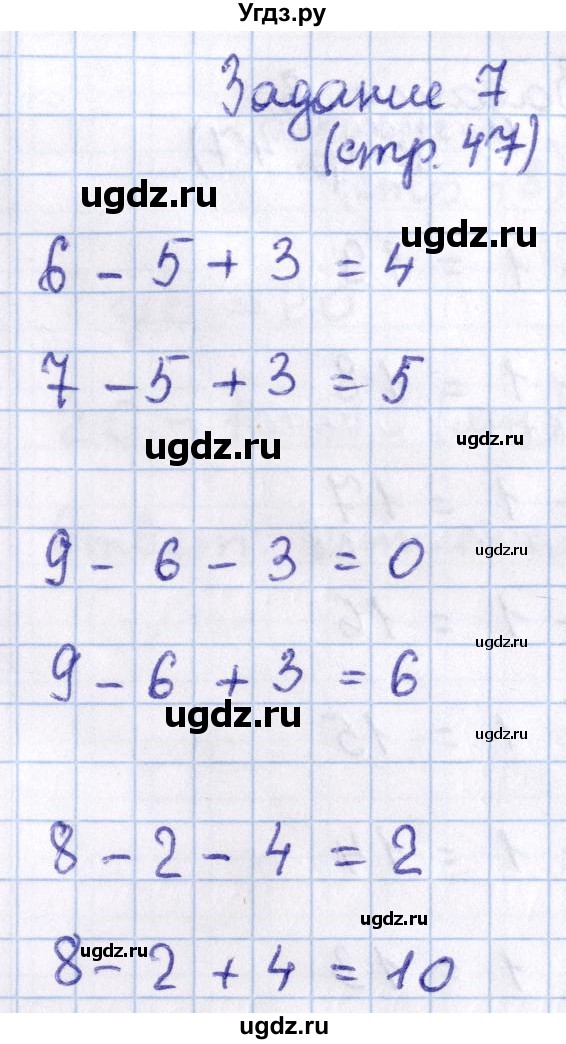 Угдз.ру
Задание 7
(стр. 47)
ugdz.ru
ugdz.ru
6 - 5 + 3 = 4
7 - 5 + 3 = 5
ugdz.ru
ugdz.ru
9 - 6 - 3 = 0
ugdz.ru
9 - 6 + 3 = 6
ugdz.ru
ugdz.ru
ugdz.ru
8 - 2 - 4 = 2
ugdz.ru
8 - 2 + 4 = 10
ugdz.ru
ugdz.ru